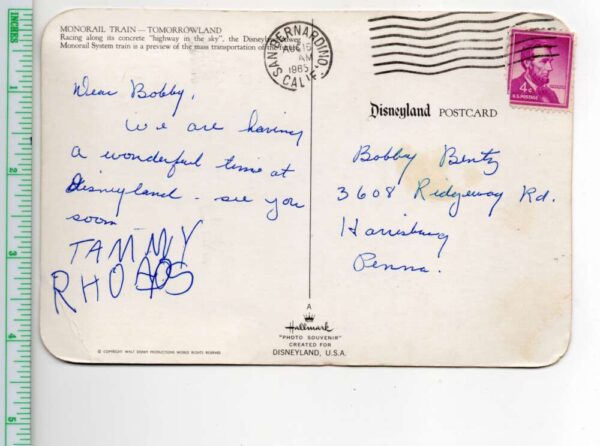 INCHES
1
2
3
4
5
MONORAIL TRAIN — TOMORROWLAND
Racing along its concrete "highway in the sky", the Disneyland
Monorail System train is a preview of the mass transportation of the
SAN BERNARDINO,
AUG 15
AM
1965
CALIF.
4¢
U.S. POSTAGE
Dear Bobby,
We are having
a wonderful time at
Disneyland - see you
soon
TAMMY
RHOADS
Disneyland POSTCARD
Bobby Bentz
3608 Ridgeway Rd.
Harrisburg
Penna.
A
Hallmark
"PHOTO SOUVENIR"
CREATED FOR
DISNEYLAND, U.S.A.
© COPYRIGHT WALT DISNEY PRODUCTIONS WORLD RIGHTS RESERVED